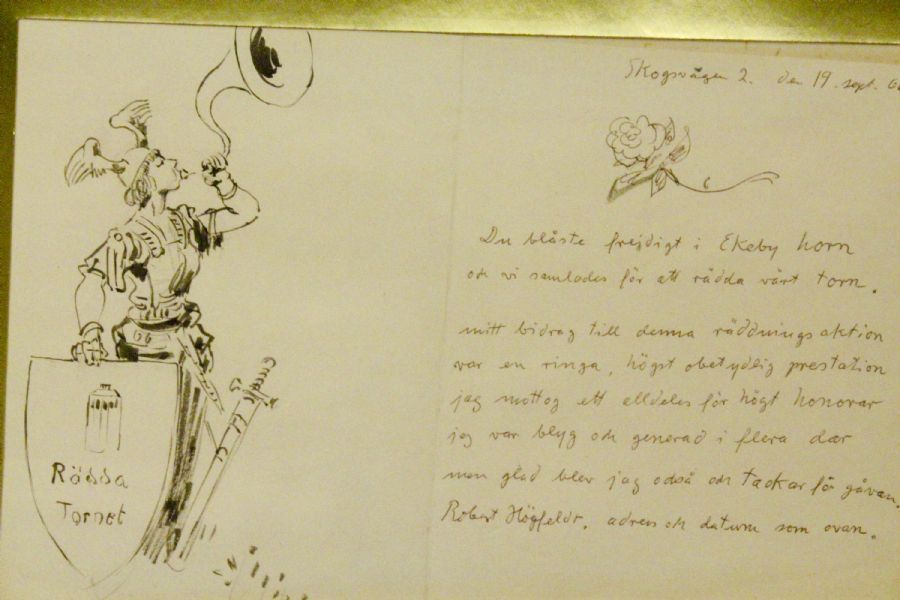 Rädda
Tornet
Skogsvägen 2. den 19. sept.
Du blåste frejdigt i Ekeby horn
och vi samlades för att rädda vårt torn.
mitt bidrag till denna räddningsaktion
var en ringa, högst obetydlig prestation
jag mottog ett alldeles för högt honorar
jag var blyg och generad i flera dar
men glad blev jag också och tackar för gåvan.
Robert Högfeldt. adress och datum som ovan.